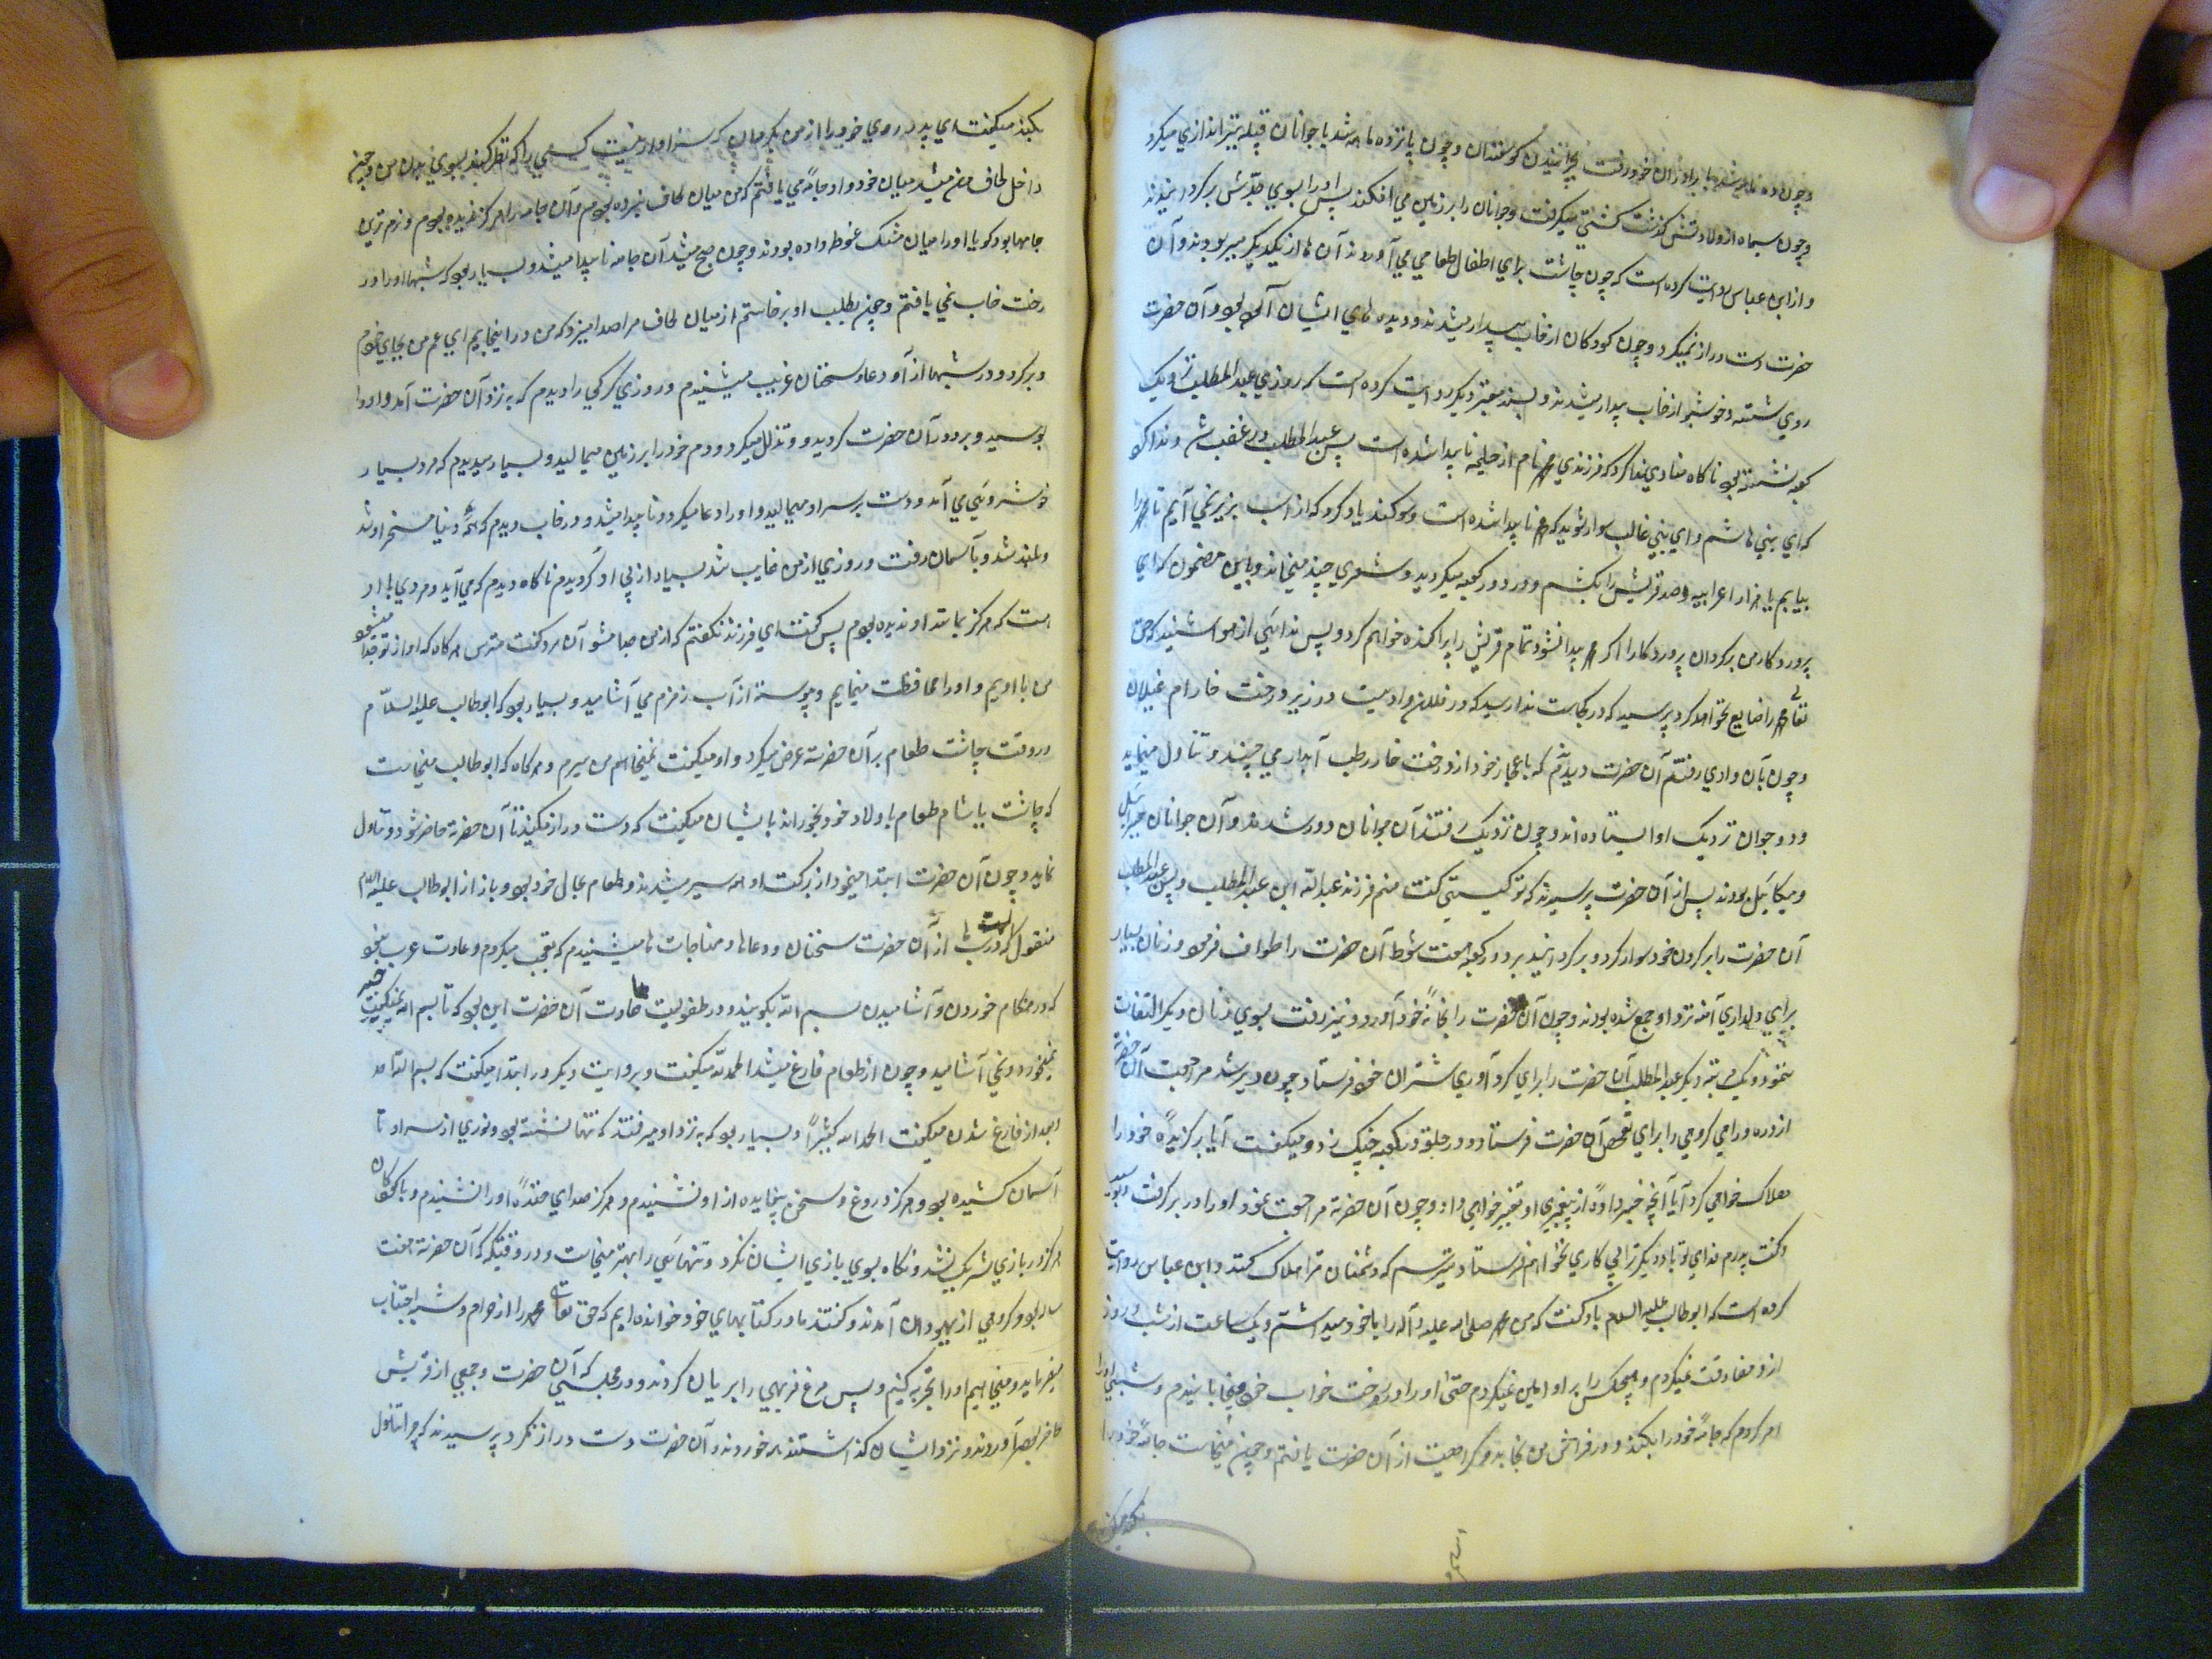 وچون ده ماهه شد با برادران خود رفت بچرانیدن گوسفندان وچون پانزده ماهه شد با جوانان قبیله تیراندازی میکرد
وچون سیماه از ولادتش گذشت کشتی میگرفت وجوانان را بر زمین می افکند پس او را بسوی جدش برگردانیدند
و از ابن عباس روایت کرده است که چون چاشت برای اطفال طعامی می آوردند آن ها از یکدیگر میربودند و آن
حضرت دست دراز نمیکرد وچون کودکان از خاب بیدار میشدند و دیده های ایشان آلوده بود و آن حضرت
روی شسته و خوشبو از خاب بیدار میشدند و بسند معتبر دیگر روایت کرده است که روزی عبد المطلب نزدیک
کعبه نشسته بود ناگاه منادی ندا کرد که فرزندی محمد نام از حلیمه ناپیدا شده است پس عبد المطلب در غضب شد و ندا کرد
که ای بنی هاشم و ای بنی غالب سوار شوید که محمد ناپیدا شده است و سوگند یاد کرد که از اسب بزیر نمی آیم تا محمد را
بیابم یا هزار اعرابی و صد قرشی را بکشم و در دور کعبه میگردید و شعری چند میخاند باین مضمون که ای
پروردگار من برگردان پروردگارا اگر محمد پیدا نشود تمام قریش را پراکنده خواهم کرد و پس ندائی از هوا شنید که حق
تعالی محمد را ضایع نخواهد کرد پرسید که در کجاست ندا رسید که در فلان وادیست در زیر درخت خار ام غیلان
وچون بآن وادی رفتند آن حضرت دیدند که باعجاز خود از درخت خار رطب آبدار می چیند و تناول مینماید
و دو جوان نزدیک او ایستاده اند وچون نزدیک رفتند آن جوانان دور شدند و آن جوانان جبرائیل
و میکائیل بودند پس از آن حضرت پرسیدند که تو کیستی گفت منم فرزند عبد الله ابن عبد المطلب و پس عبد المطلب
آن حضرت را بر گردن خود سوار کرد و برگردانید بر دور کعبه هفت شوط آن حضرت را طواف فرمود و زنان بسیار
برای دلداری آمنه نزد او جمع شده بودند وچون آن حضرت را بخانه خود آورد و نیز رفت بسوی زنان دیگر التفات
ننمود و یک مرتبه دیگر عبد المطلب آن حضرت را برای گرد آوری شتران خود فرستاد چون دیر شد مراجعت آن حضرت
از دره و راهی گروهی را برای تفحص آن حضرت فرستاد و در حلقه در کعبه چنگ زد و میگفت آیا برگزیده خود را
هلاک خواهی کرد آیا آنچه خبر داده از پیغمبری او تغییر خواهی داد وچون آن حضرت مراجعت نمود او را در بر گرفت و بوسید
و گفت پدرم فدای تو باد دیگر ترا پی کاری نخواهم فرستاد میترسم که دشمنان ترا هلاک کنند و ابن عباس روایت
کرده است که ابو طالب علیه السلام باو گفت که من محمد صلی الله علیه و آله را با خود میداشتم و یک ساعت از شب و روز
از و مفارقت نمیکردم و هیچکس را بر او امین نمیکردم حتی او را در رخت خواب خود میخابانیدم و شبی او را
امر کردم که جامه خود را بکند و در فراش من بخابد و کراهیت از آن حضرت یافتم وچون میخاست جامه خود را
بکند میگفت
بکند میگفت ای پدر روی خود را از من بگردان که سزاوار نیست کسی را که نظر کند بسوی بدن من وچون
داخل لحاف من میشد میان خود و او جامه می یافتم که من میان لحاف نبرده بودم و آن جامه را هرگز ندیده بودم و نرم ترین
جامها بود گویا او را میان مشک غوطه داده بودند وچون صبح میشد آن جامه ناپیدا میشد و بسیار بود که شبها او را در
رخت خاب نمی یافتم وچون بطلب او بر خاستم از میان لحاف مرا صدا میزد که من در اینجایم ای عم من بجای خود
و برگرد و در شبها از آو دعا و سخنان غریب میشنیدم و روزی گرگی را دیدم که به نزد آن حضرت آمد و او را
بوسید و بر دور آن حضرت گردید و تذلل میکرد و دم خود را بر زمین میمالید و بسیار میدیدم که مرد بسیار
خوشروئی می آمد و دست بر سر او میمالید و او را دعا میکرد و ناپیدا میشد و در خاب دیدم که همه دنیا مسخر او شد
و بلند شد و بآسمان رفت و روزی از من غایب شد بسیار از پی او گردیدم ناگاه دیدم که می آید و مردی با او
است که هرگز بمانند او ندیده بودم پس گفت ای فرزند نگفتم که از من جدا مشو آن مرد گفت مترس هرگاه که او از تو جدا میشود
من با اویم و او را محافظت مینمایم و پیوسته از آب زمزم می آشامید و بسیار بود که ابو طالب علیه السلام
در وقت چاشت طعام بر آن حضرت عرض میکرد و او میگفت نمیخاهم من سیرم و هرگاه که ابو طالب میخاست
که چاشت یا شام طعام باولاد خود بخوراند بایشان میگفت که دست دراز مکنید تا آن حضرت حاضر شود و تناول
نماید وچون آن حضرت ابتدا مینمود از برکت او همه سیر میشدند و طعام بحال خود بود و باز از ابو طالب علیه السلام
منقول است که در شبها از آن حضرت سخنان و دعاها و مناجات ها میشنیدم که تعجب میکردم و عادت عرب نبود
که در هنگام خوردن و آشامیدن بسم الله بگویند و در طفولیت عادت آن حضرت این بود که تا بسم الله نمیگفت چیزی
نمیخورد و نمی آشامید وچون از طعام فارغ میشد الحمد لله میگفت و بروایت دیگر در ابتدا میگفت که بسم الله احد
و بعد از فارغ شدن میگفت الحمد لله کثیرا و بسیار بود که به نزد او میرفتند که تنها نشسته بود و نوری از سر او تا
آسمان کشیده بود و هرگز دروغ و سخن بیفایده از او نشنیدم و هرگز صدای خنده او را نشنیدم و با کودکان
هرگز در بازی شریک نشد و نگاه بسوی بازی ایشان نکرد و تنهائی را بهتر میخاست و در وقتیکه که آن حضرت هفت
ساله بود گروهی از یهودان آمدند و گفتند ما در کتابهای خود خوانده ایم که حق تعالی محمد را از حرام و شبه اجتناب
میفرماید و میخاهیم او را تجربه کنیم و پس مرغ فربهی را بریان کردند و در مجلسی که آن حضرت و جمعی از قریش
حاضر بودند آوردند و نزد ایشان گذاشتند همه خوردند و آن حضرت دست دراز نکرد پرسیدند که چرا تناول